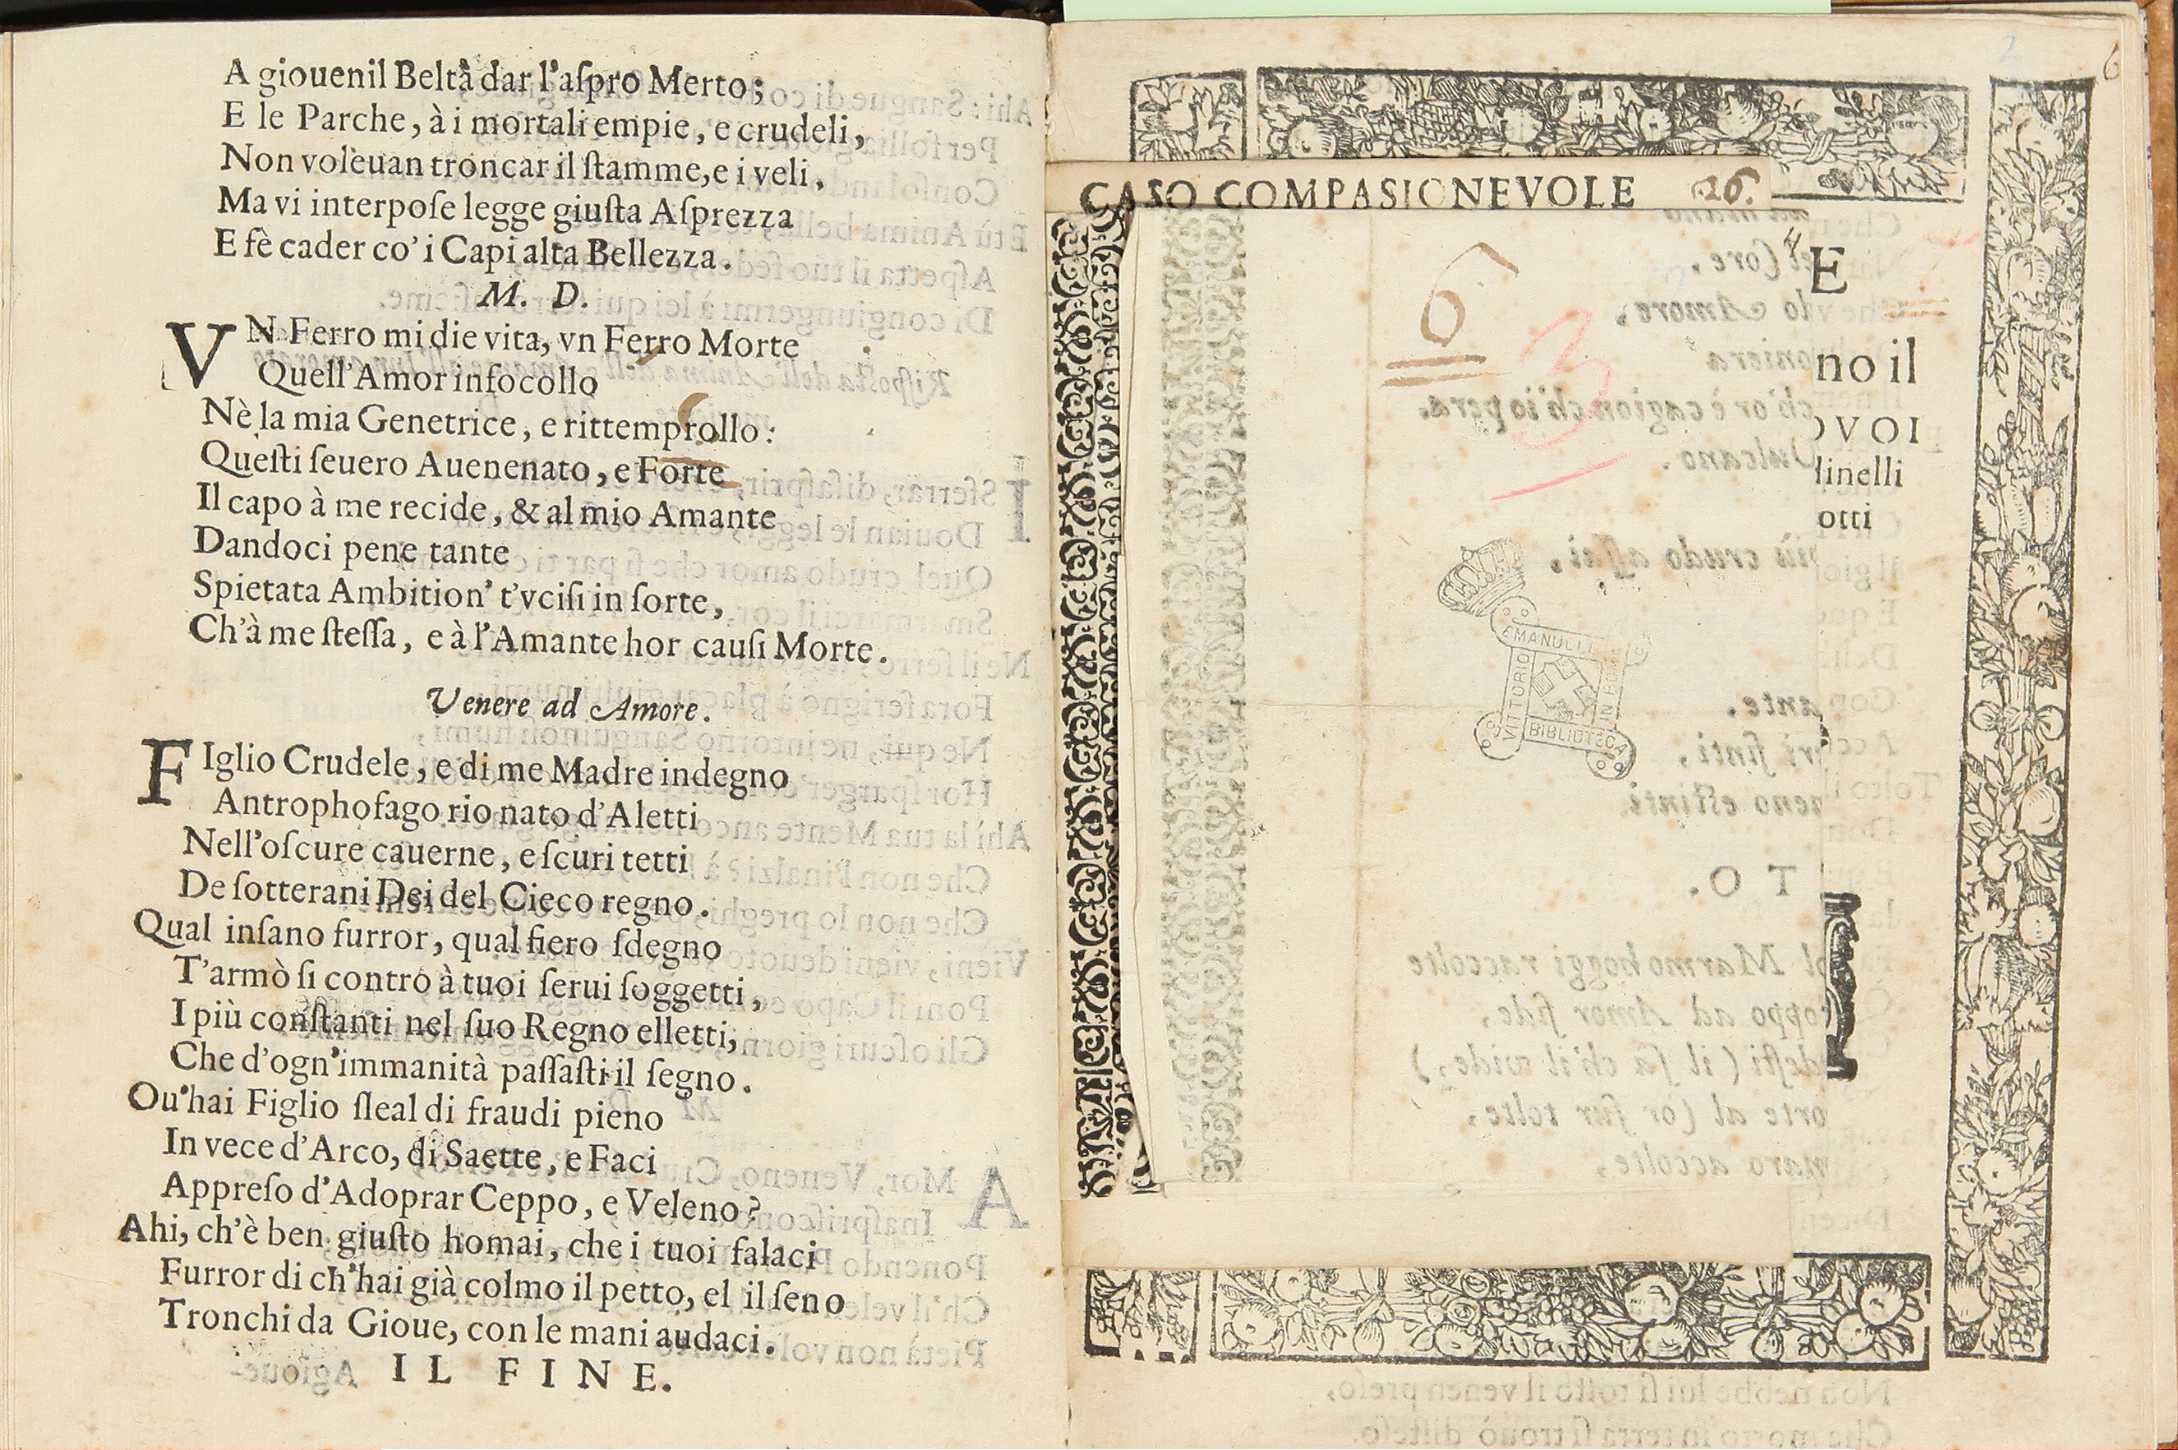 A giouenil Beltà dar l'aſpro Merto;
E le Parche, à i mortali empie, e crudeli,
Non volèuan troncar il ſtamme, e i veli,
Ma vi interpoſe legge giuſta Aſprezza
E fè cader co' i Capi alta Bellezza.
M. D.
VN Ferro mi die vita, vn Ferro Morte
Quell'Amor infocollo
Nè la mia Genetrice, e rittemprollo:
Queſti ſeuero Auenenato, e Forte
Il capo à me recide, & al mio Amante
Dandoci pene tante
Spietata Ambition' t'vciſi in ſorte,
Ch'à me ſteſſa, e à l'Amante hor cauſi Morte.
Venere ad Amore.
FIglio Crudele, e di me Madre indegno
Antrophofago rio nato d'Aletti
Nell'oſcure cauerne, e ſcuri tetti
De ſotterani Dei del Cieco regno.
Qual inſano furror, qual fiero ſdegno
T'armò ſi contro à tuoi ſerui ſoggetti,
I più conſtanti nel ſuo Regno elletti,
Che d'ogn'immanità paſſaſti il ſegno.
Ou'hai Figlio ſleal di fraudi pieno
In vece d'Arco, di Saette, e Faci
Appreſo d'Adoprar Ceppo, e Veleno?
Ahi, ch'è ben giuſto homai, che i tuoi falaci
Furror di ch'hai già colmo il petto, el il ſeno
Tronchi da Gioue, con le mani audaci.
IL FINE.
2
6
CASO COMPASIONEVOLE 26.
6
E
3
no il
OVOI
linelli
otti
VITTORIO EMANUELE
BIBLIOTECA